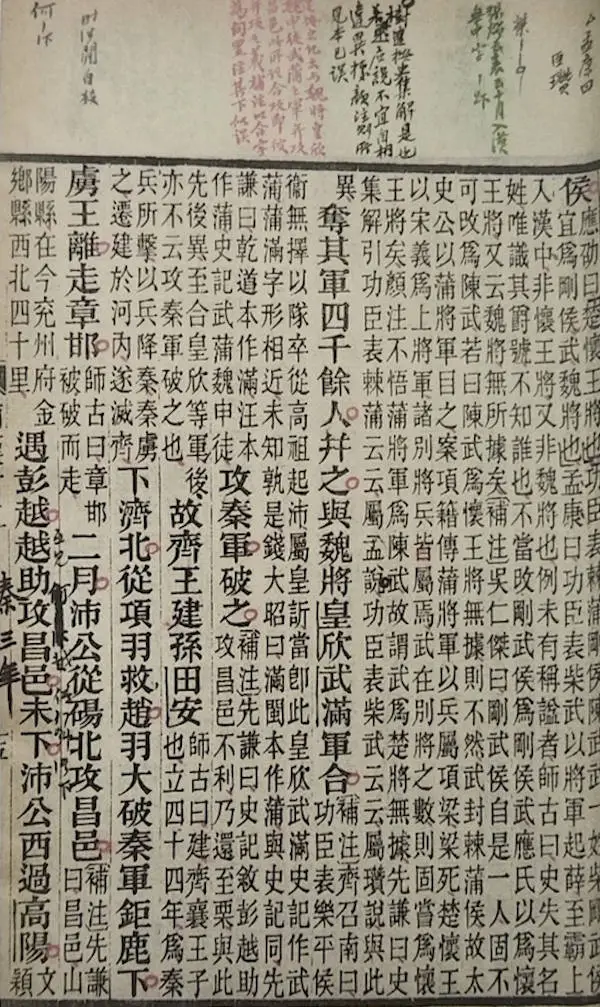 臣瓚
樹達按集解是也
違異標顏注則所
見本已誤
侯
應劭曰楚懷王將也功臣表棘蒲剛侯陳武武一姓柴剛武侯
宜為剛侯武魏將也孟康曰功臣表柴武以將軍起薛至霸上
入漢中非懷王將又非魏將也例未有稱謚者師古曰史失其名
姓唯識其爵號不知誰也不當改剛武侯為剛侯武應氏以為懷
王將又云魏將無所據矣補注吳仁傑曰剛武侯自是一人固不
可改為陳武若曰陳武為懷王將無據則不然武封棘蒲侯故太
史公以蒲將軍目之案項籍傳蒲將軍以兵屬項梁梁死楚懷王
以宋義為上將軍諸別將兵皆屬焉武在別將之數則固當為懷
王將矣顏注不悟蒲將軍為陳武故謂武為楚將無據先謙曰史
集解引功臣表棘蒲云云屬孟說功臣表柴武云云屬瓚說與此
異
奪其軍四千餘人并之與魏將皇欣武滿軍合
補注齊召南曰
功臣表樂平侯
衞無擇以隊卒從高祖起沛屬皇訢當卽此皇欣武滿史記作武
蒲蒲滿字形相近未知孰是錢大昭曰滿閩本作蒲與史記同先
謙曰乾道本作滿汪本
作蒲史記武蒲魏申徒
攻秦軍破之
補注先謙曰史記敘彭越助
攻昌邑不利乃還至栗與此
先後異至合皇欣等軍後
亦不云攻秦軍破之也
故齊王建孫田安
師古曰建齊襄王子
也立四十四年為秦
兵所擊以兵降秦秦虜
之遷建於河內遂滅齊
下濟北從項羽救趙羽大破秦軍鉅鹿下
虜王離走章邯
師古曰章邯
被破而走
二月沛公從碭北攻昌邑
補注先謙
曰昌邑山
陽縣在今兗州府金
鄉縣西北四十里
遇彭越越助攻昌邑未下沛公西過高陽
文
穎
秦三年